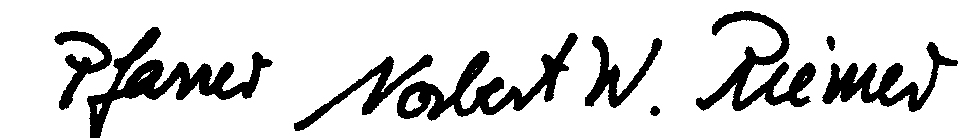 Pfarrer Norbert W. Riemer